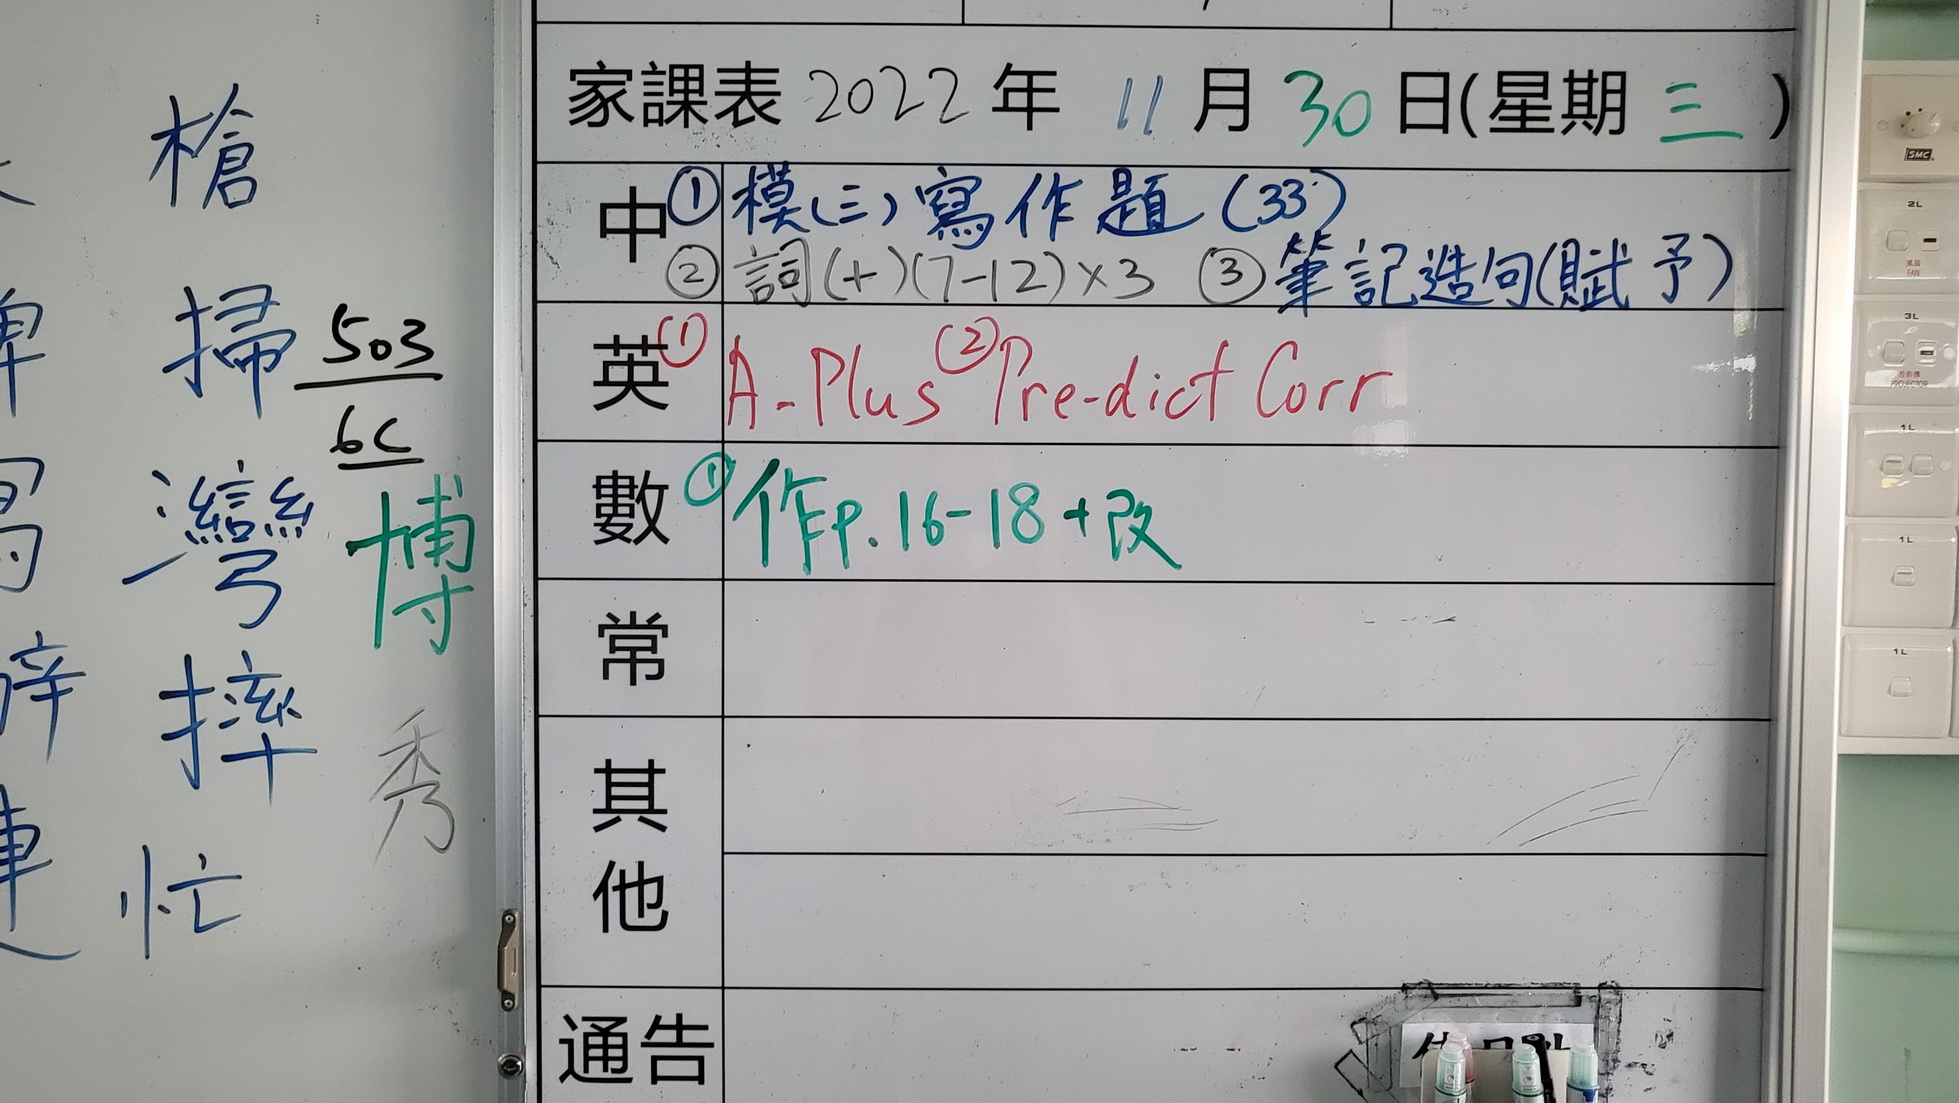 槍
掃
503
6C
灣
博
摔
秀
忙
家課表 2022 年 11 月 30 日(星期 三 )
中 ① 模(三)寫作題(33)
② 詞(+)(7-12)×3 ③ 筆記造句(賦予)
英 ① A-Plus ② Pre-dict Corr
數 ① 作p.16-18+改
常
其他
通告
SMC
2L
風扇
FAN
3L
投影機
PROJECTOR
1L
1L
1L